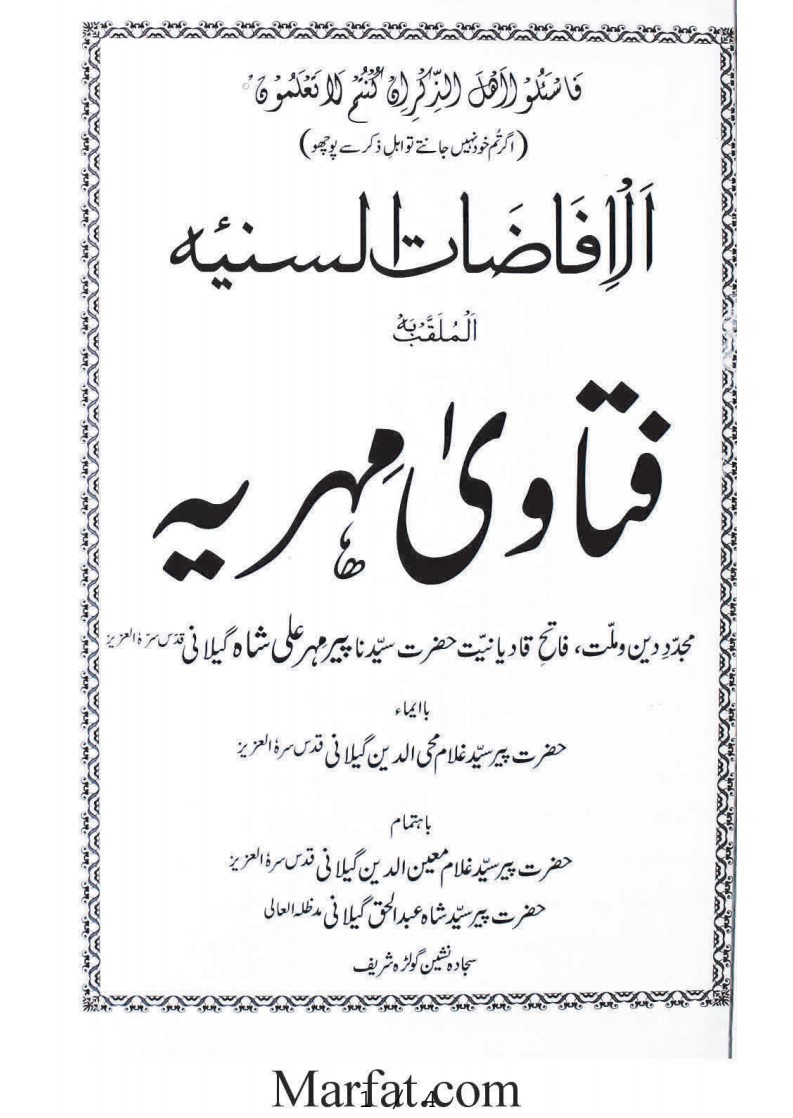 فَاسْئَلُوْا اَهْلَ الذِّكْرِ اِنْ كُنْتُمْ لَا تَعْلَمُوْنَ
(اگر تُم خود نہیں جانتے تو اہلِ ذکر سے پوچھو)
اَلْاِفَاضَات السنیّه
اَلْمُلَقَّب بَہْ
فتاویٰ مِہریہ
مجدّدِ دین و ملّت، فاتحِ قادیانیّت حضرت سیّدنا پیر مہر علی شاہ گیلانی قدّس سرّہٗ العزیز
باایماء
حضرت پیر سیّد غلام محی الدین گیلانی قدس سرہٗ العزیز
باہتمام
حضرت پیر سیّد غلام معین الدین گیلانی قدس سرہٗ العزیز
حضرت پیر سیّد شاہ عبدالحق گیلانی مدظلہ العالی
سجادہ نشین گولڑہ شریف
Marfat.com